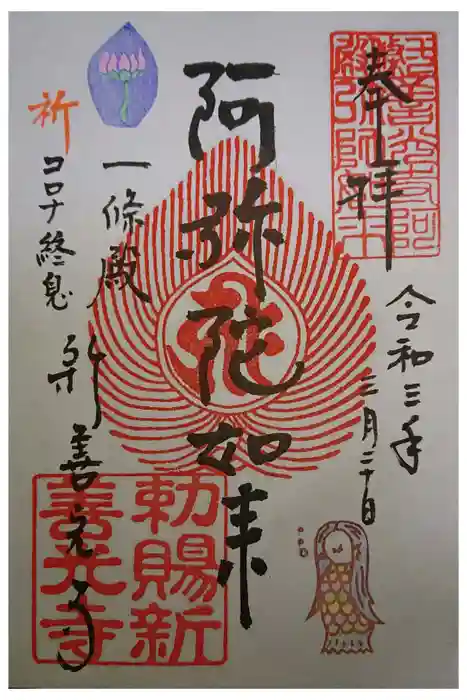 奉拝
令和三年
三月二十日
阿弥陀如来
一條殿
新善光寺
祈
コロナ終息
勅賜新
善光寺